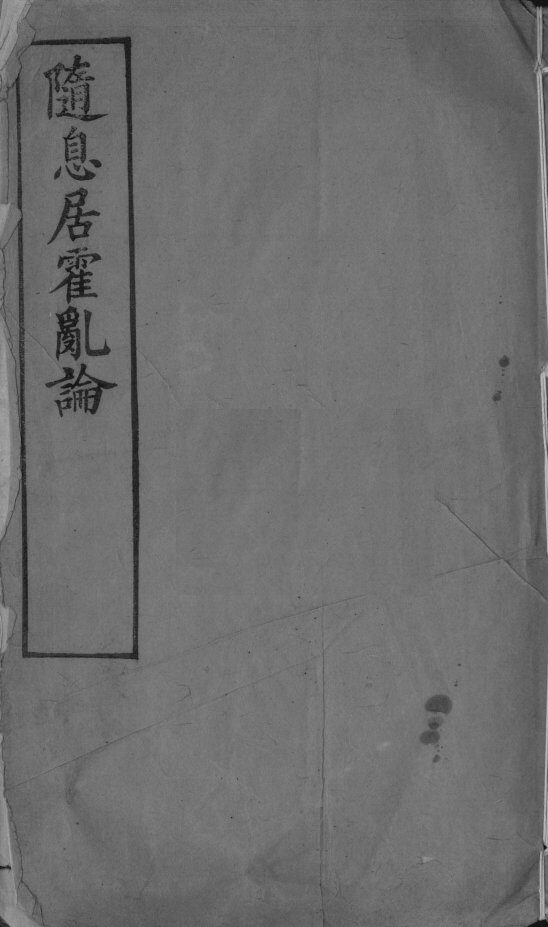 隨息居霍亂論